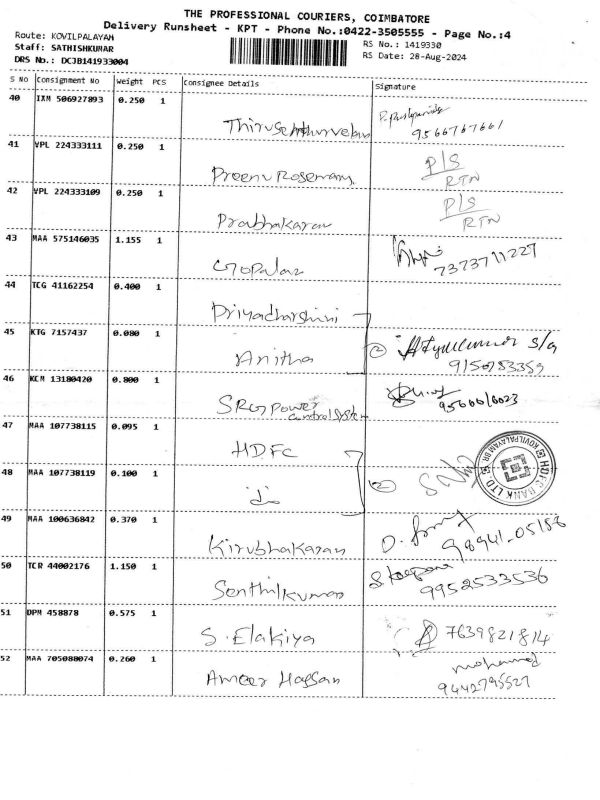 THE PROFESSIONAL COURIERS, COIMBATORE
Delivery Runsheet - KPT - Phone No.:0422-3505555 - Page No.:4
Route: KOVILPALAYAM
Staff: SATHISHKUMAR
DRS No.: DCJB141933004
RS No.: 1419330
RS Date: 28-Aug-2024
S No Consignment No Weight PCS Consignee Details Signature
40 IXM 506927893 0.250 1
9566767661
41 VPL 224333111 0.250 1 Preenu Rosemary P/S RTN
42 VPL 224333109 0.250 1 Prabhakaran P/S RTN
43 MAA 575146035 1.155 1 Gopalan 7373711227
44 TCG 41162254 0.400 1 Priyadharshini
45 KTG 7157437 0.080 1 Anitha 2 S/o
46 KCM 13180420 0.800 1 SRG Power Control System
47 MAA 107738115 0.095 1 HDFC
48 MAA 107738119 0.100 1 2
HDFC BANK LTD KOVILPALAYAM BR.
49 MAA 100636842 0.370 1 Kirubhakaran
50 TCR 44002176 1.150 1 Senthilkumar 9952533536
51 DPM 458878 0.575 1 S. Elakiya 7639821814
52 MAA 705088074 0.260 1 Ameer Hassan mohamed 9442795527